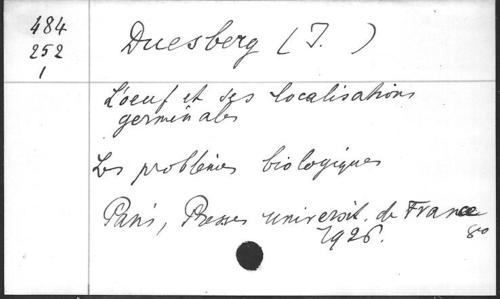 484
252
1
Duesberg (J.)
L'oeuf et ses localisations
germinales
Les problèmes biologiques
Paris, Presses universit. de France
1926.
8º